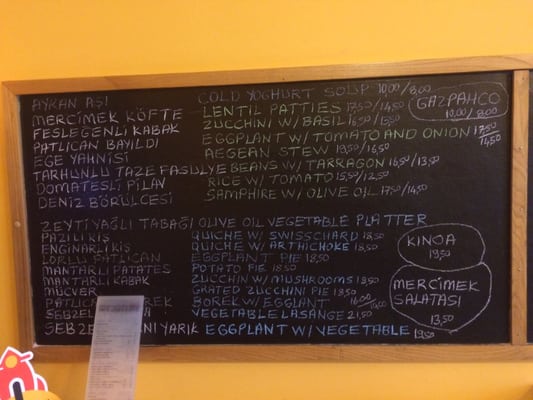 AYRAN AŞI COLD YOGHURT SOUP 10,00/8,00
MERCİMEK KÖFTE LENTIL PATTIES 17,50/14,50
FESLEĞENLİ KABAK ZUCCHINI W/BASIL 16,50/13,50
PATLICAN BAYILDI EGGPLANT W/TOMATO AND ONION 17,50/14,50
EGE YAHNİSİ AEGEAN STEW 19,50/16,50
TARHUNLU TAZE FASULYE BEANS W/TARRAGON 16,50/13,50
DOMATESLİ PİLAV RICE W/TOMATO 15,50/12,50
DENİZ BÖRÜLCESİ SAMPHIRE W/OLIVE OIL 17,50/14,50
GAZPAHCO
10,00/8,00
ZEYTİYAĞLI TABAĞI OLIVE OIL VEGETABLE PLATTER
PAZILI KİŞ QUICHE W/SWISSCHARD 18,50
ENGİNARLI KİŞ QUICHE W/ARTHICHOKE 18,50
LORLU PATLICAN EGGPLANT PIE 18,50
MANTARLI PATATES POTATO PIE 18,50
MANTARLI KABAK ZUCCHIN W/MUSHROOMS 18,50
MÜCVER GRATED ZUCCHINI PIE 18,50
PATLICAN BÖREK W/EGGLANT 16,00
SEBZELİ VEGETABLE LASANGE 21,50
SEBZE YARIK EGGPLANT W/VEGETABLE 19,50
KINOA
19,50
MERCİMEK
SALATASI
13,50